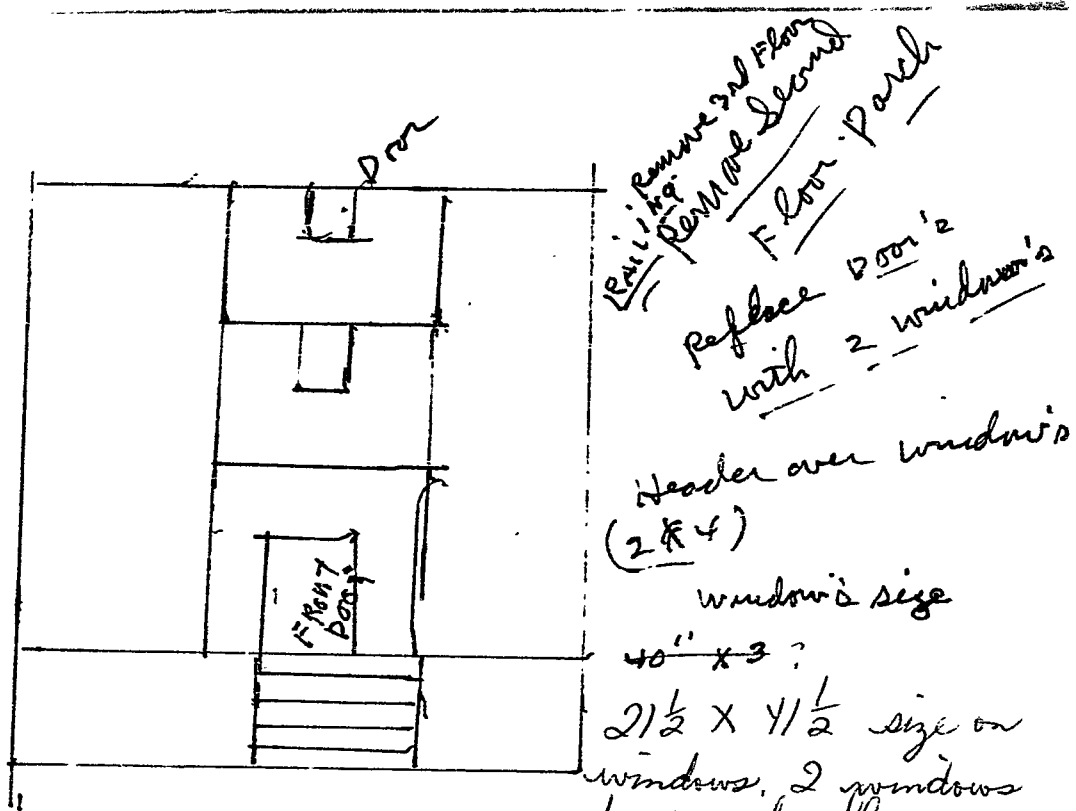 Door
Remove 3rd Floor
RAILING
Remove Second
Floor Porch
Replace Door's
with 2 windows's
Header over window's
(2 x 4)
window's size
40" x 3 ?
21 1/2 X 41 1/2 size on
windows, 2 windows
FRONT